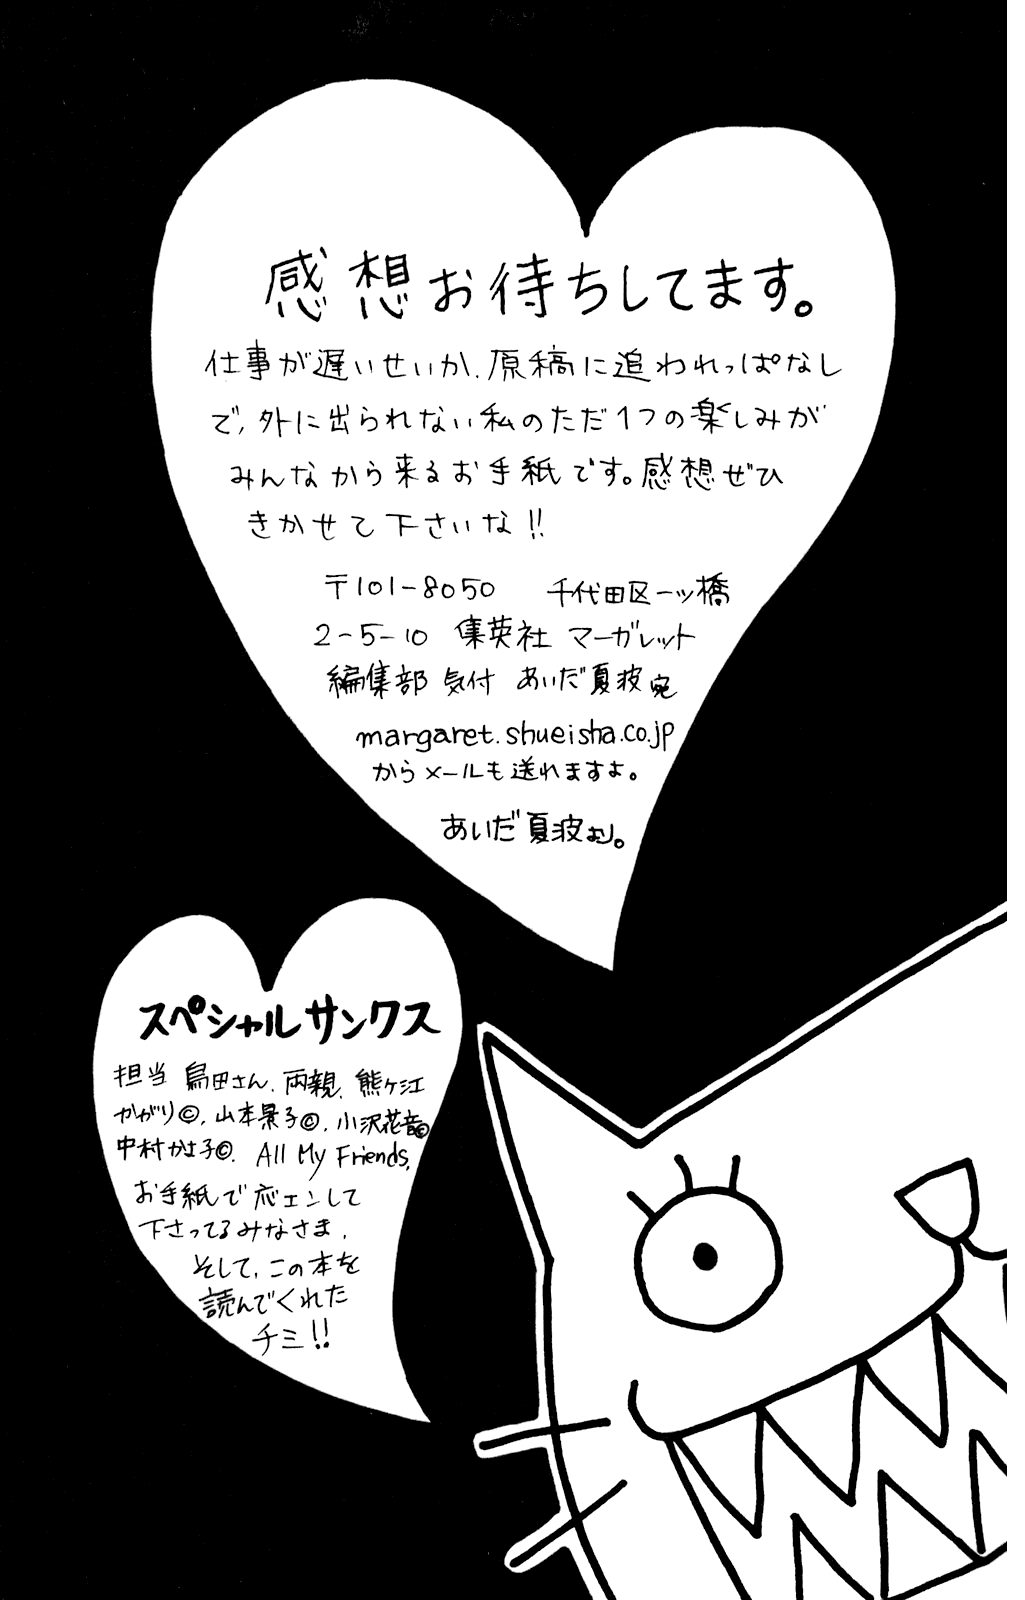 感想お待ちしてます。
仕事が遅いせいか、原稿に追われっぱなし
で、外に出られない私のただ1つの楽しみが
みんなから来るお手紙です。感想ぜひ
きかせて下さいな!!
〒101-8050 千代田区一ツ橋
2-5-10 集英社 マーガレット
編集部 気付 あいだ夏波宛
margaret.shueisha.co.jp
からメールも送れますよ。
あいだ夏波より。
スペシャルサンクス
担当 鳥田さん、両親、熊ヶ江
かがり©、山本景子©、小沢花音©
中村かさ子©、All My Friends,
お手紙で応エンして
下さってるみなさま、
そして、この本を
読んでくれた
チミ!!